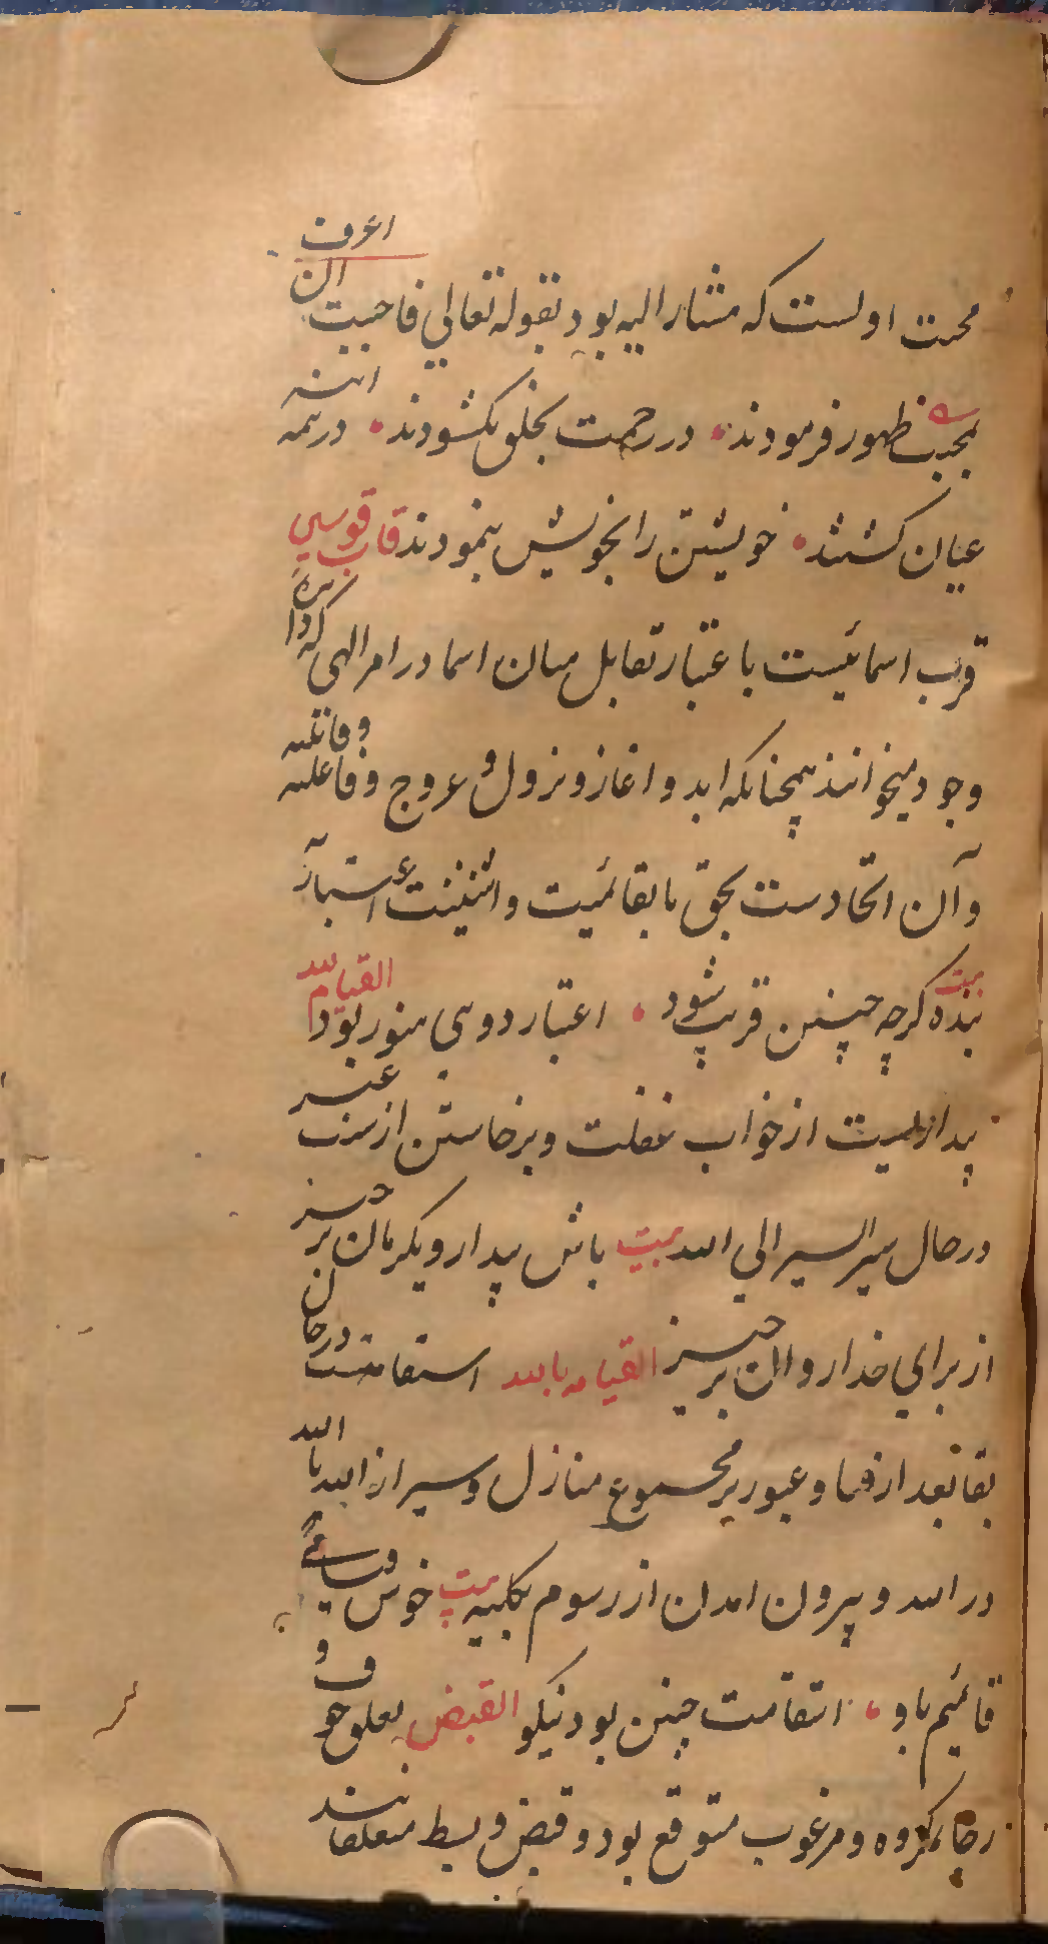 محبت اولست که مشارالیه بود بقوله تعالی فاحببت ان اعرف
بمحبت ظهور فرمودند در رحمت بخلق بکشودند در همه اینه
عیان کشتند خویشتن را بخویش بنمودند قاب قوسین
قرب اسمائیست باعتبار تقابل میان اسما در امر الهی که دایره
وجود میخوانند همچنانکه ابد و اغاز و نزول و عروج و فاعلیه و قابلیه
و آن اتحادست بحق با بقا تمیت و اثنینیت
بیت بنده کرچه چنین قریب شود اعتبار دویی هنوز بود القیام لله
بیداریست از خواب غفلت و برخاستن از
در حال سیر السیر الی الله بیت باش بیدار و یکزمان برخیز
از برای خدا روان برخیز القیام بالله استقامتست در حال
بقا بعد از فنا و عبور بر مجموع منازل و سیر از الله بالله
در الله و بیرون امدن از رسوم بکلیه بیت خوش
قائیم باو استقامت چنین بود نیکو القبض تعلق خوف و
رجا بمکروه و مرغوب متوقع بود و قبض و بسط متعلقانند